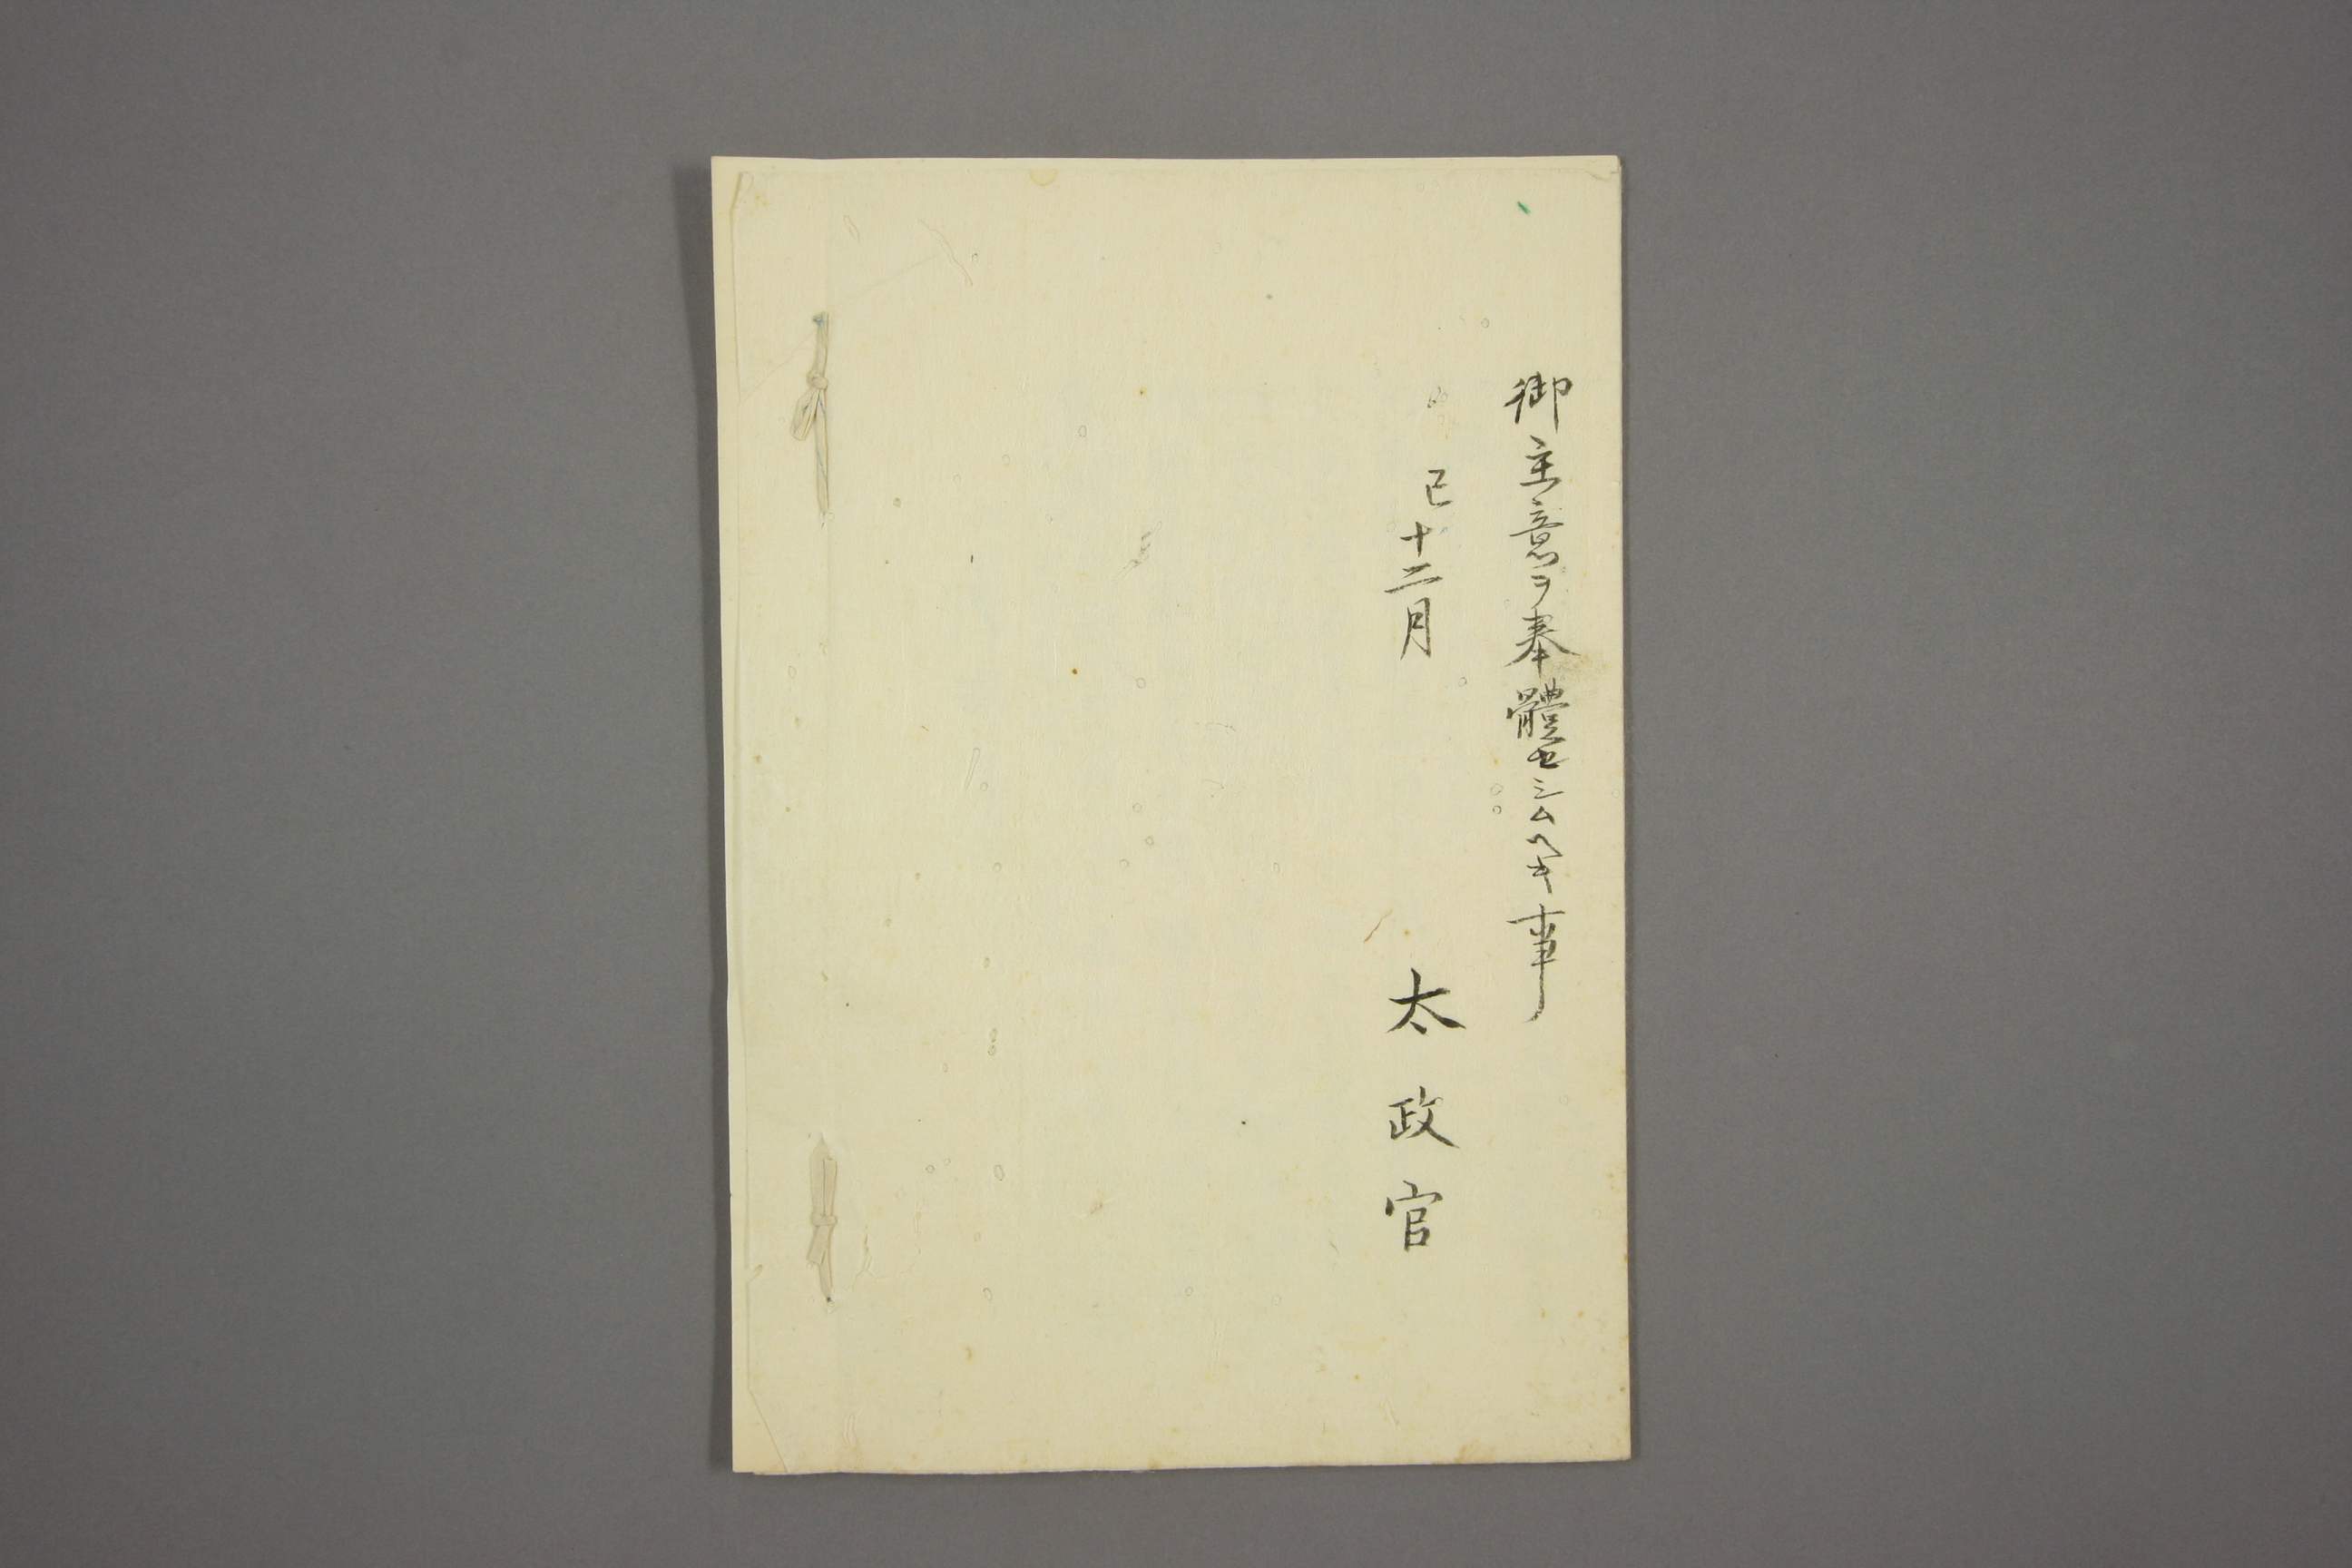 御主意ヲ奉體セシムヘキ事
巳十二月
太政官